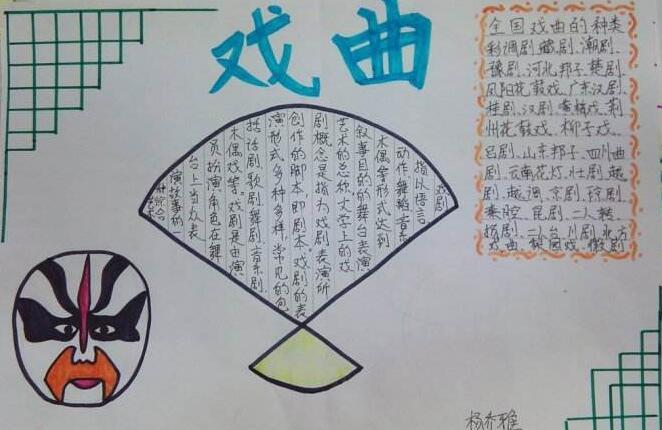 戏曲
全国戏曲的种类
彩调剧.藏剧.潮剧.
豫剧.河北邦子.楚剧.
凤阳花鼓戏.广东汉剧.
桂剧.汉剧.
州花鼓戏.柳子戏.
吕剧.山东邦子.四川曲
剧.云南花灯.壮剧.越
剧.越调.京剧.
秦腔.昆剧.二人转
扬剧.二人台.川剧.北方
戏曲.梨园戏.徽剧
戏剧
指以语言
动作舞蹈音乐
木偶等形式达到
叙事目的的舞台表演
艺术的总称文学上的戏
剧概念是指为戏剧表演所
创作的脚本即剧本戏剧的表
演形式多种多样,常见的包
括话剧歌剧舞剧音乐剧.
木偶戏等.戏剧是由演
员扮演角色在舞
台上当众表
演故事的一
种综合
杨乔雅